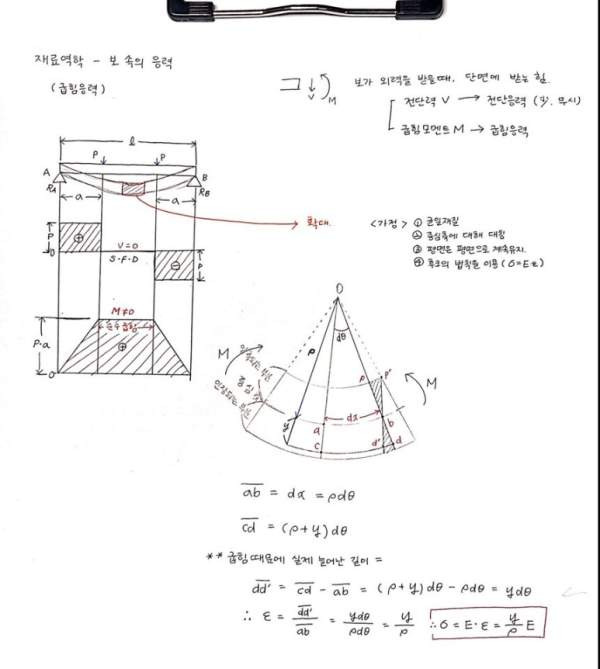 재료역학 - 보 속의 응력
(굽힘응력)
V
M
보가 외력을 받을때, 단면에 받는 힘.
전단력 V → 전단응력 (
무시)
굽힘모멘트 M → 굽힘응력
l
P
P
A
B
RA
RB
a
a
확대.
P
⊕
0
V=0
S·F·D
⊖
P
M≠0
순수굽힘
P·a
⊕
0
<가정> ① 균일재질
② 중심축에 대해 대칭
③ 평면은 평면으로 계속유지.
④ 후크의 법칙을 이용 (σ=Eε)
O
dθ
ρ
M
압축되는 부분
중심축
인장되는 부분
P
P'
M
dx
y
a
b
c
d'
d
ab = dx = ρdθ
cd = (ρ+y)dθ
** 굽힘때문에 실제 늘어난 길이 =
dd' = cd - ab = (ρ+y)dθ - ρdθ = ydθ
∴ ε = dd'/ab = ydθ/ρdθ = y/ρ ∴ σ = E·ε = y/ρ E